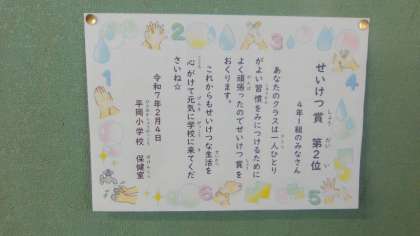 せいけつ賞 第2位
4年1組のみなさん
あなたのクラスは一人ひとり
がよい習慣をみにつけるために
よく頑張ったのでせいけつ賞を
おくります。
これからもせいけつな生活を
心がけて元気に学校に来てくだ
さいね☆
令和7年2月4日
平岡小学校 保健室
1
2
3
4
5
6